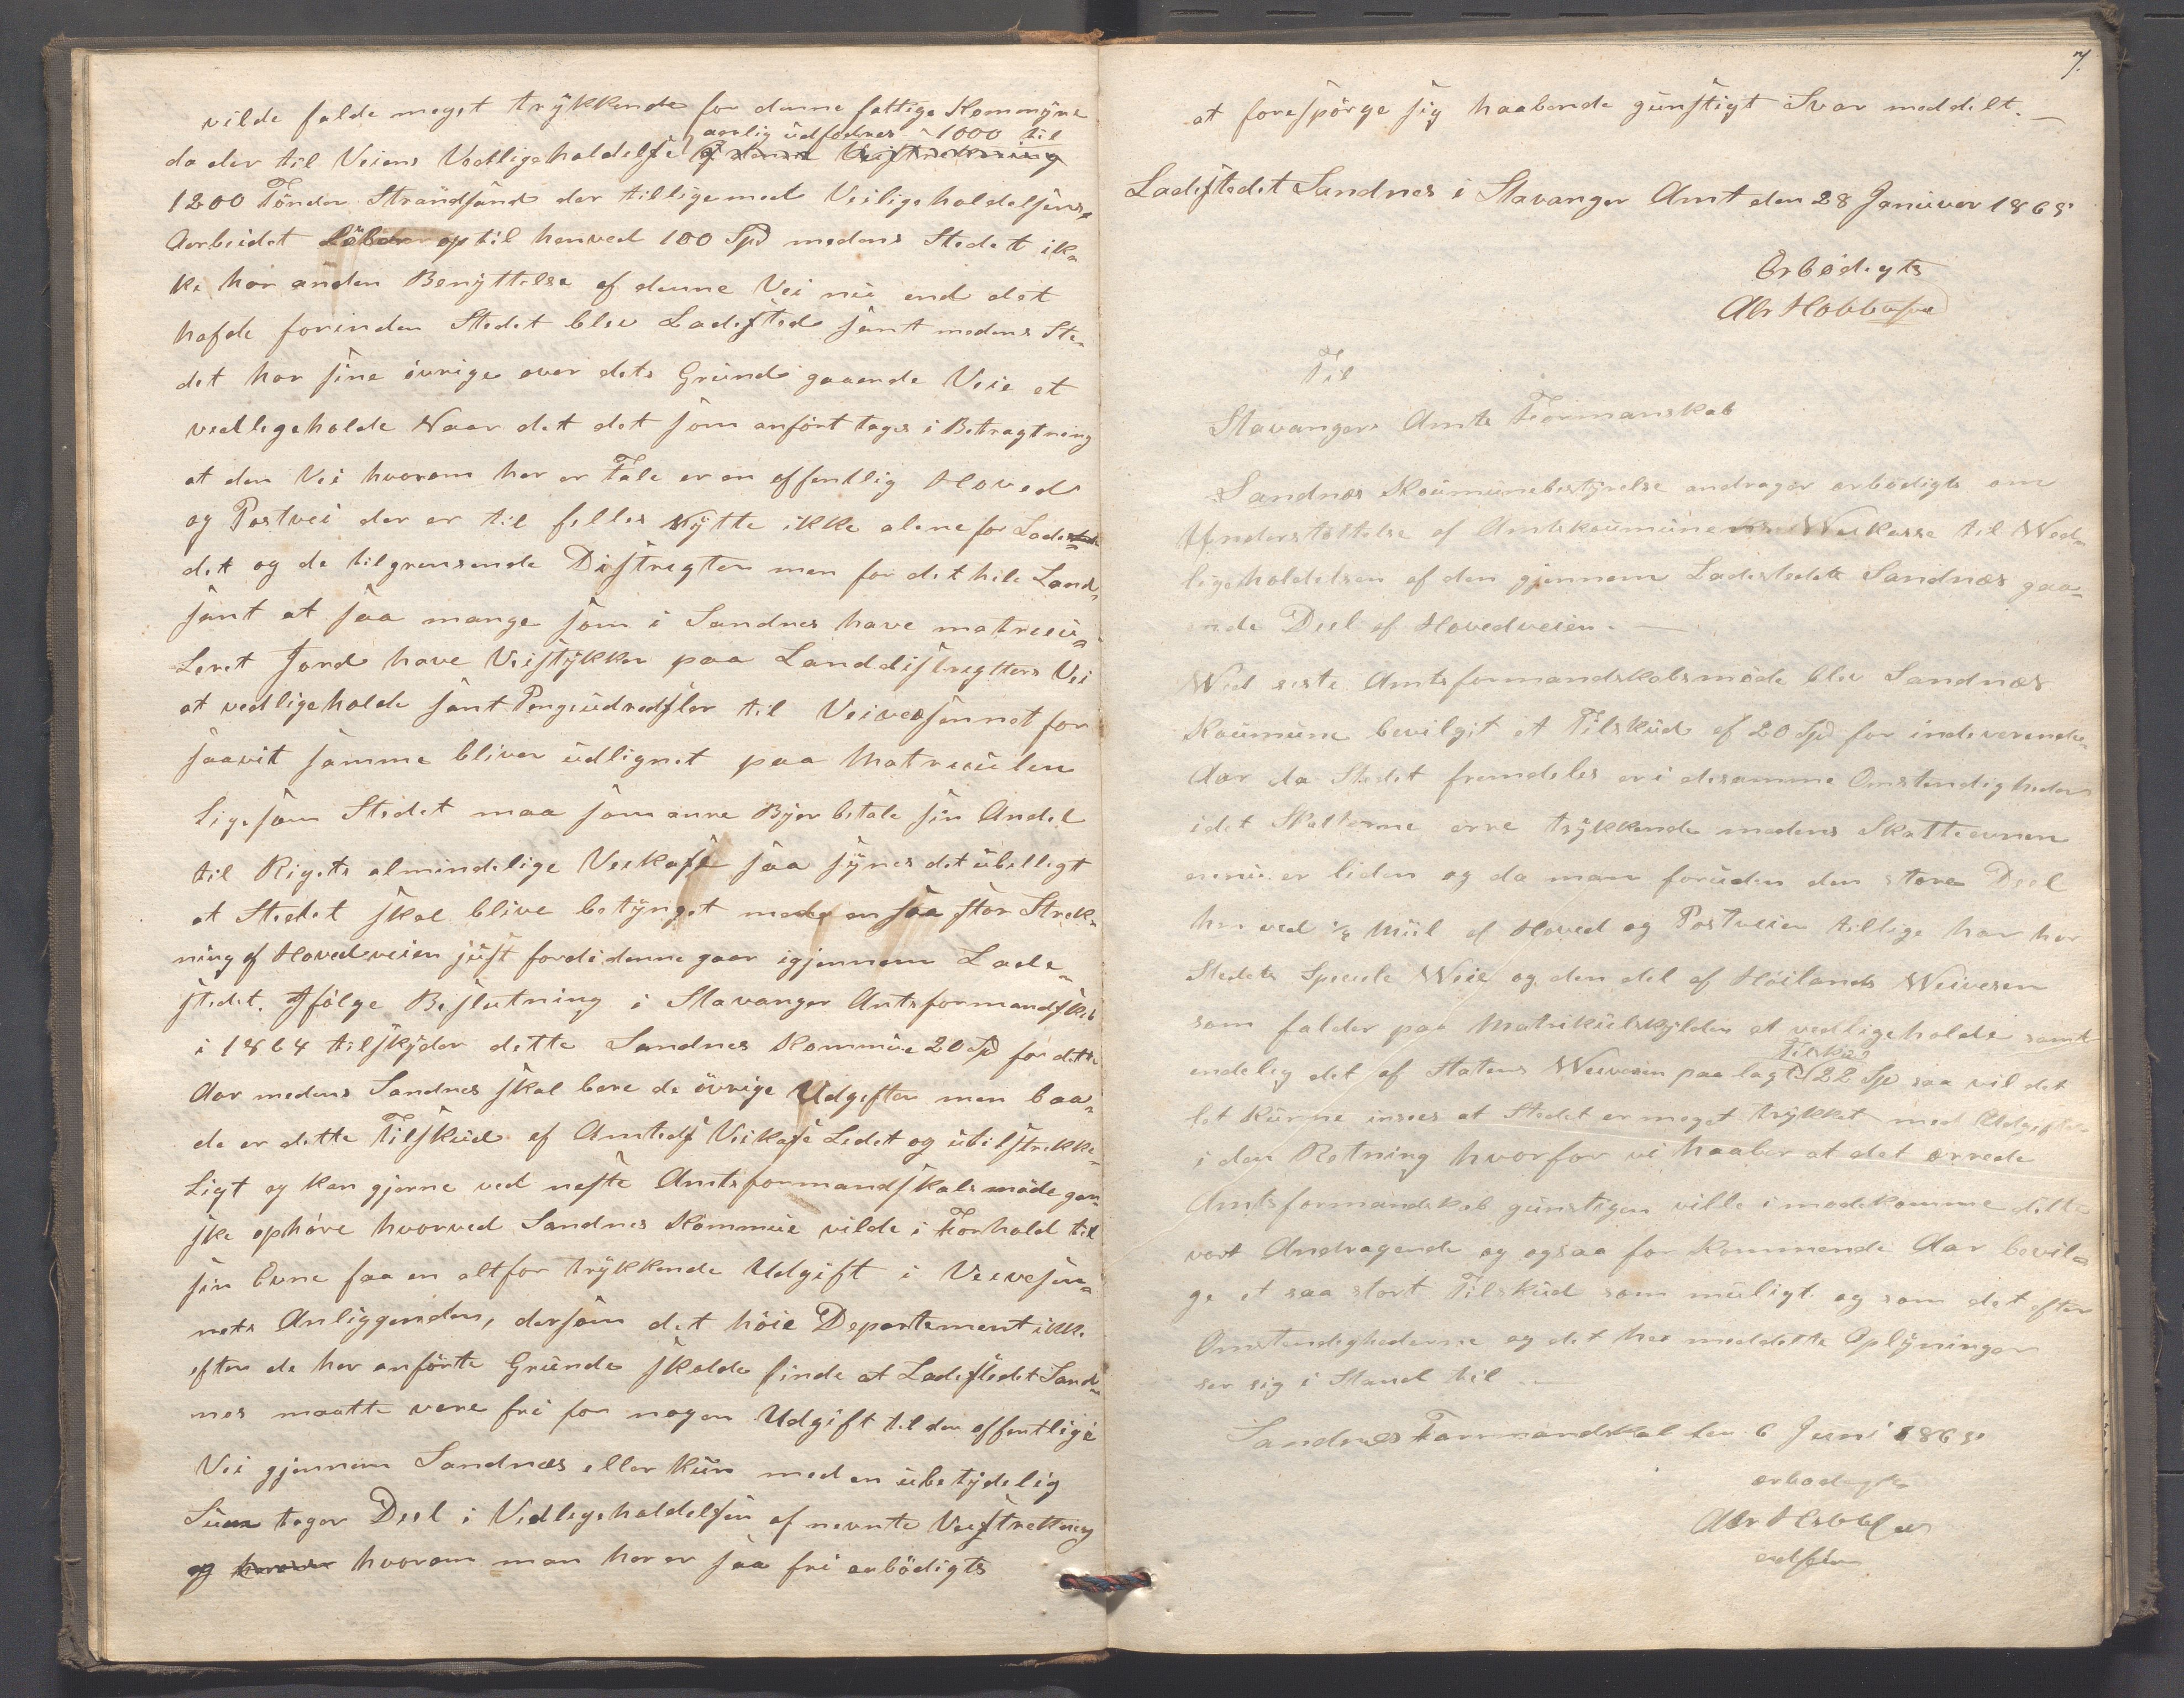 vilde falde meget trykkende for denne fattige Kommune
da der til Veiens Vedligeholdelse aarlig udfodres 1000 til
1200 Tönder Strandsand der tilligemed Veiligeholdelsens
Aerbeidet löber optil henved 100 Spd medens Stedet ik„
ke har anden Benyttelse af denne Vei nu end det
hafde forinden Stedet blev Ladested samt medens Ste„
det har sine övrige over dets Grund gaaende Veie at
vedligeholde Naar det det som anfört tages i Betragtning
at den Vei hvorom her er Tale er en offentlig Hoved
og Postvei der er til felles Nytte ikke alene for Ladeste
det og de tilgrensende Distrigter men for det hele Land„
samt at saa mange som i Sandnes have matricu„
Leret Jord have Veistykker paa Landdistrigters Vei
at vedligeholde samt Pengeudredsler til Veivesennet for
saavit samme bliver udlignet paa Matriculen
Ligesom Stedet maa som anre Byer betale sin Andel
til Rigets almindelige Veikasse saa synes det ubelligt
at Stedet skal blive betynget med en saa stor Strek„
ning af Hovedveien just fordi denne gaar igjennem Lade„
stedet. Ifölge Beslutning i Stavanger Amtsformandskab
i 1864 tilskyder dette Sandnes Kommune 20 Spd for dette
Aar medens Sandnes skal bere de övrige Udgifter men baa„
de er dette Tilskud af Amtets Veikasse Lidet og utilstrekke„
Ligt og kan gjerne ved neste Amtsformandskabsmöde gan„
ske ophöre hvorved Sandnes Kommune vilde i Forhold til
sin Evne faa en altfor trykkende Udgift i Veivesen„
nets Anliggender, dersom det höie Departement ikke
efter de her anförte Grunde skulde finde at Ladestedet Sand„
nes maatte vere fri for nogen Udgift til den offentlige
Vei gjennem Sandnes eller kun med en ubetydelig
Sum tager Deel i Vedligeholdelsen af nevnte Veistrekning
og hvorom man her er saa fri erbödigts
7.
at forespörge sig haabende gunstigt Svar meddelt.
Ladestedet Sandnes i Stavanger Amt den 28 Januver 1865
Erbödigts
Til
Stavangers Amts Formanskab
Sandnæs Koumunebestyrelse andrager erbödigts om
Understöttelse af Amtskoumunens Weikasse til Wed„
ligeholdelsen af den gjennem Ladestedet Sandnæs gaa„
ende Deel af Hovedveien.
Wed siste Amtsformandskabsmöde blev Sandnæs
Koumune bevilgit et Tilskud af 20 Spd for indeverende
Aar da Stedet fremdeles er i desamme Omstendigheder
idet Skatterne erre trykkende medens Skatteevnen
enu er liden og da man foruden den store Deel
henved ¼ Miil af Hoved og Postveien tillige har her
Stedets Speciele Weie og den del af Höilands Weivesen
som falder paa Matrikulskylden at vedligeholde samt
endelig det af Statens Weivesen paalagte Tilskud 22 Spd saa vil det
let kunne insees at Stedet er meget trykket med Udgifter
i den Retning hvorfor vi haaber at det ærrede
Amtsformandskab gunstigen ville imødekomme dette
vort Andragende og ogsaa for kommende Aar bevil„
ge et saa stort Tilskud som muligt og som det efter
Omstendighederne og det her meddelte Oplyninger
ser sig i Stand til
Sandnes Formandskab den 6 Juni 1865
erbödigts